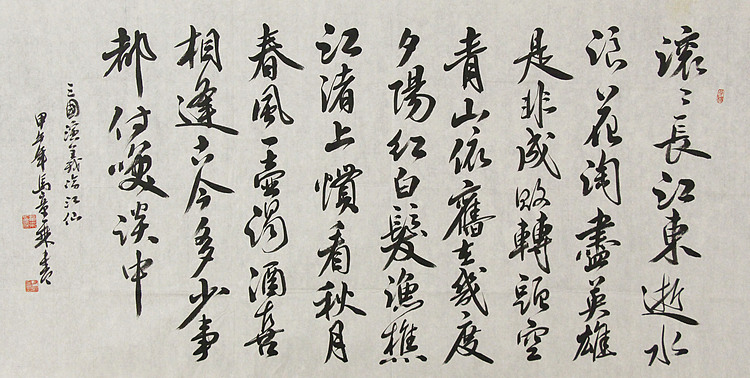 滚〻長江東逝水
浪花淘盡英雄
是非成敗轉頭空
青山依舊在幾度
夕陽紅白髮漁樵
江渚上慣看秋月
春風一壺濁酒喜
相逢古今多少事
都付咲談中
三國演義臨江仙
甲午年書